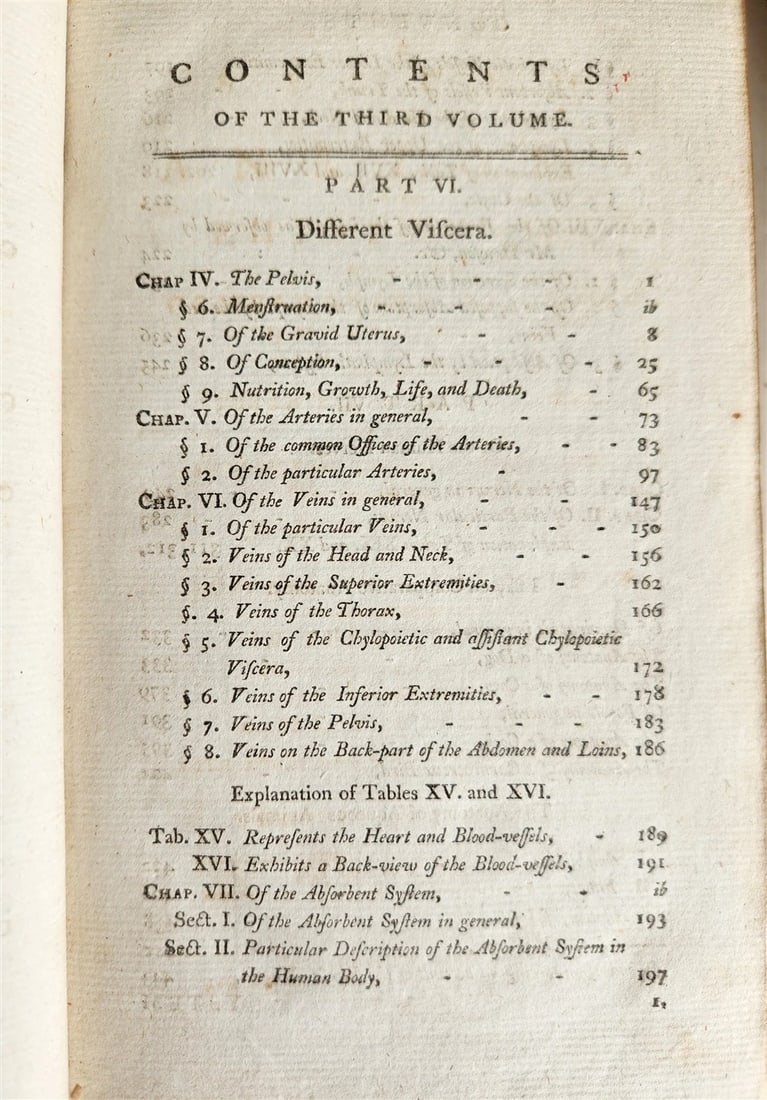 CONTENTS
OF THE THIRD VOLUME.
PART VI.
Different Viſcera.
CHAP IV. The Pelvis, - - - 1
§ 6. Menſtruation, - - - ib
§ 7. Of the Gravid Uterus, - - 8
§ 8. Of Conception, - - - 25
§ 9. Nutrition, Growth, Life, and Death, - 65
CHAP. V. Of the Arteries in general, - - 73
§ 1. Of the common Offices of the Arteries, - - 83
§ 2. Of the particular Arteries, - 97
CHAP. VI. Of the Veins in general, - - 147
§ 1. Of the particular Veins, - - - 150
§ 2. Veins of the Head and Neck, - - 156
§ 3. Veins of the Superior Extremities, - 162
§. 4. Veins of the Thorax, 166
§ 5. Veins of the Chylopoietic and aſſiſtant Chylopoietic
Viſcera, 172
§ 6. Veins of the Inferior Extremities, - - 178
§ 7. Veins of the Pelvis, - - - 183
§ 8. Veins on the Back-part of the Abdomen and Loins, 186
Explanation of Tables XV. and XVI.
Tab. XV. Repreſents the Heart and Blood-veſſels, - 189
XVI. Exhibits a Back-view of the Blood-veſſels, 191
CHAP. VII. Of the Abſorbent Syſtem, - - ib
Sect. I. Of the Abſorbent Syſtem in general, 193
Sect. II. Particular Deſcription of the Abſorbent Syſtem in
the Human Body, - - 197